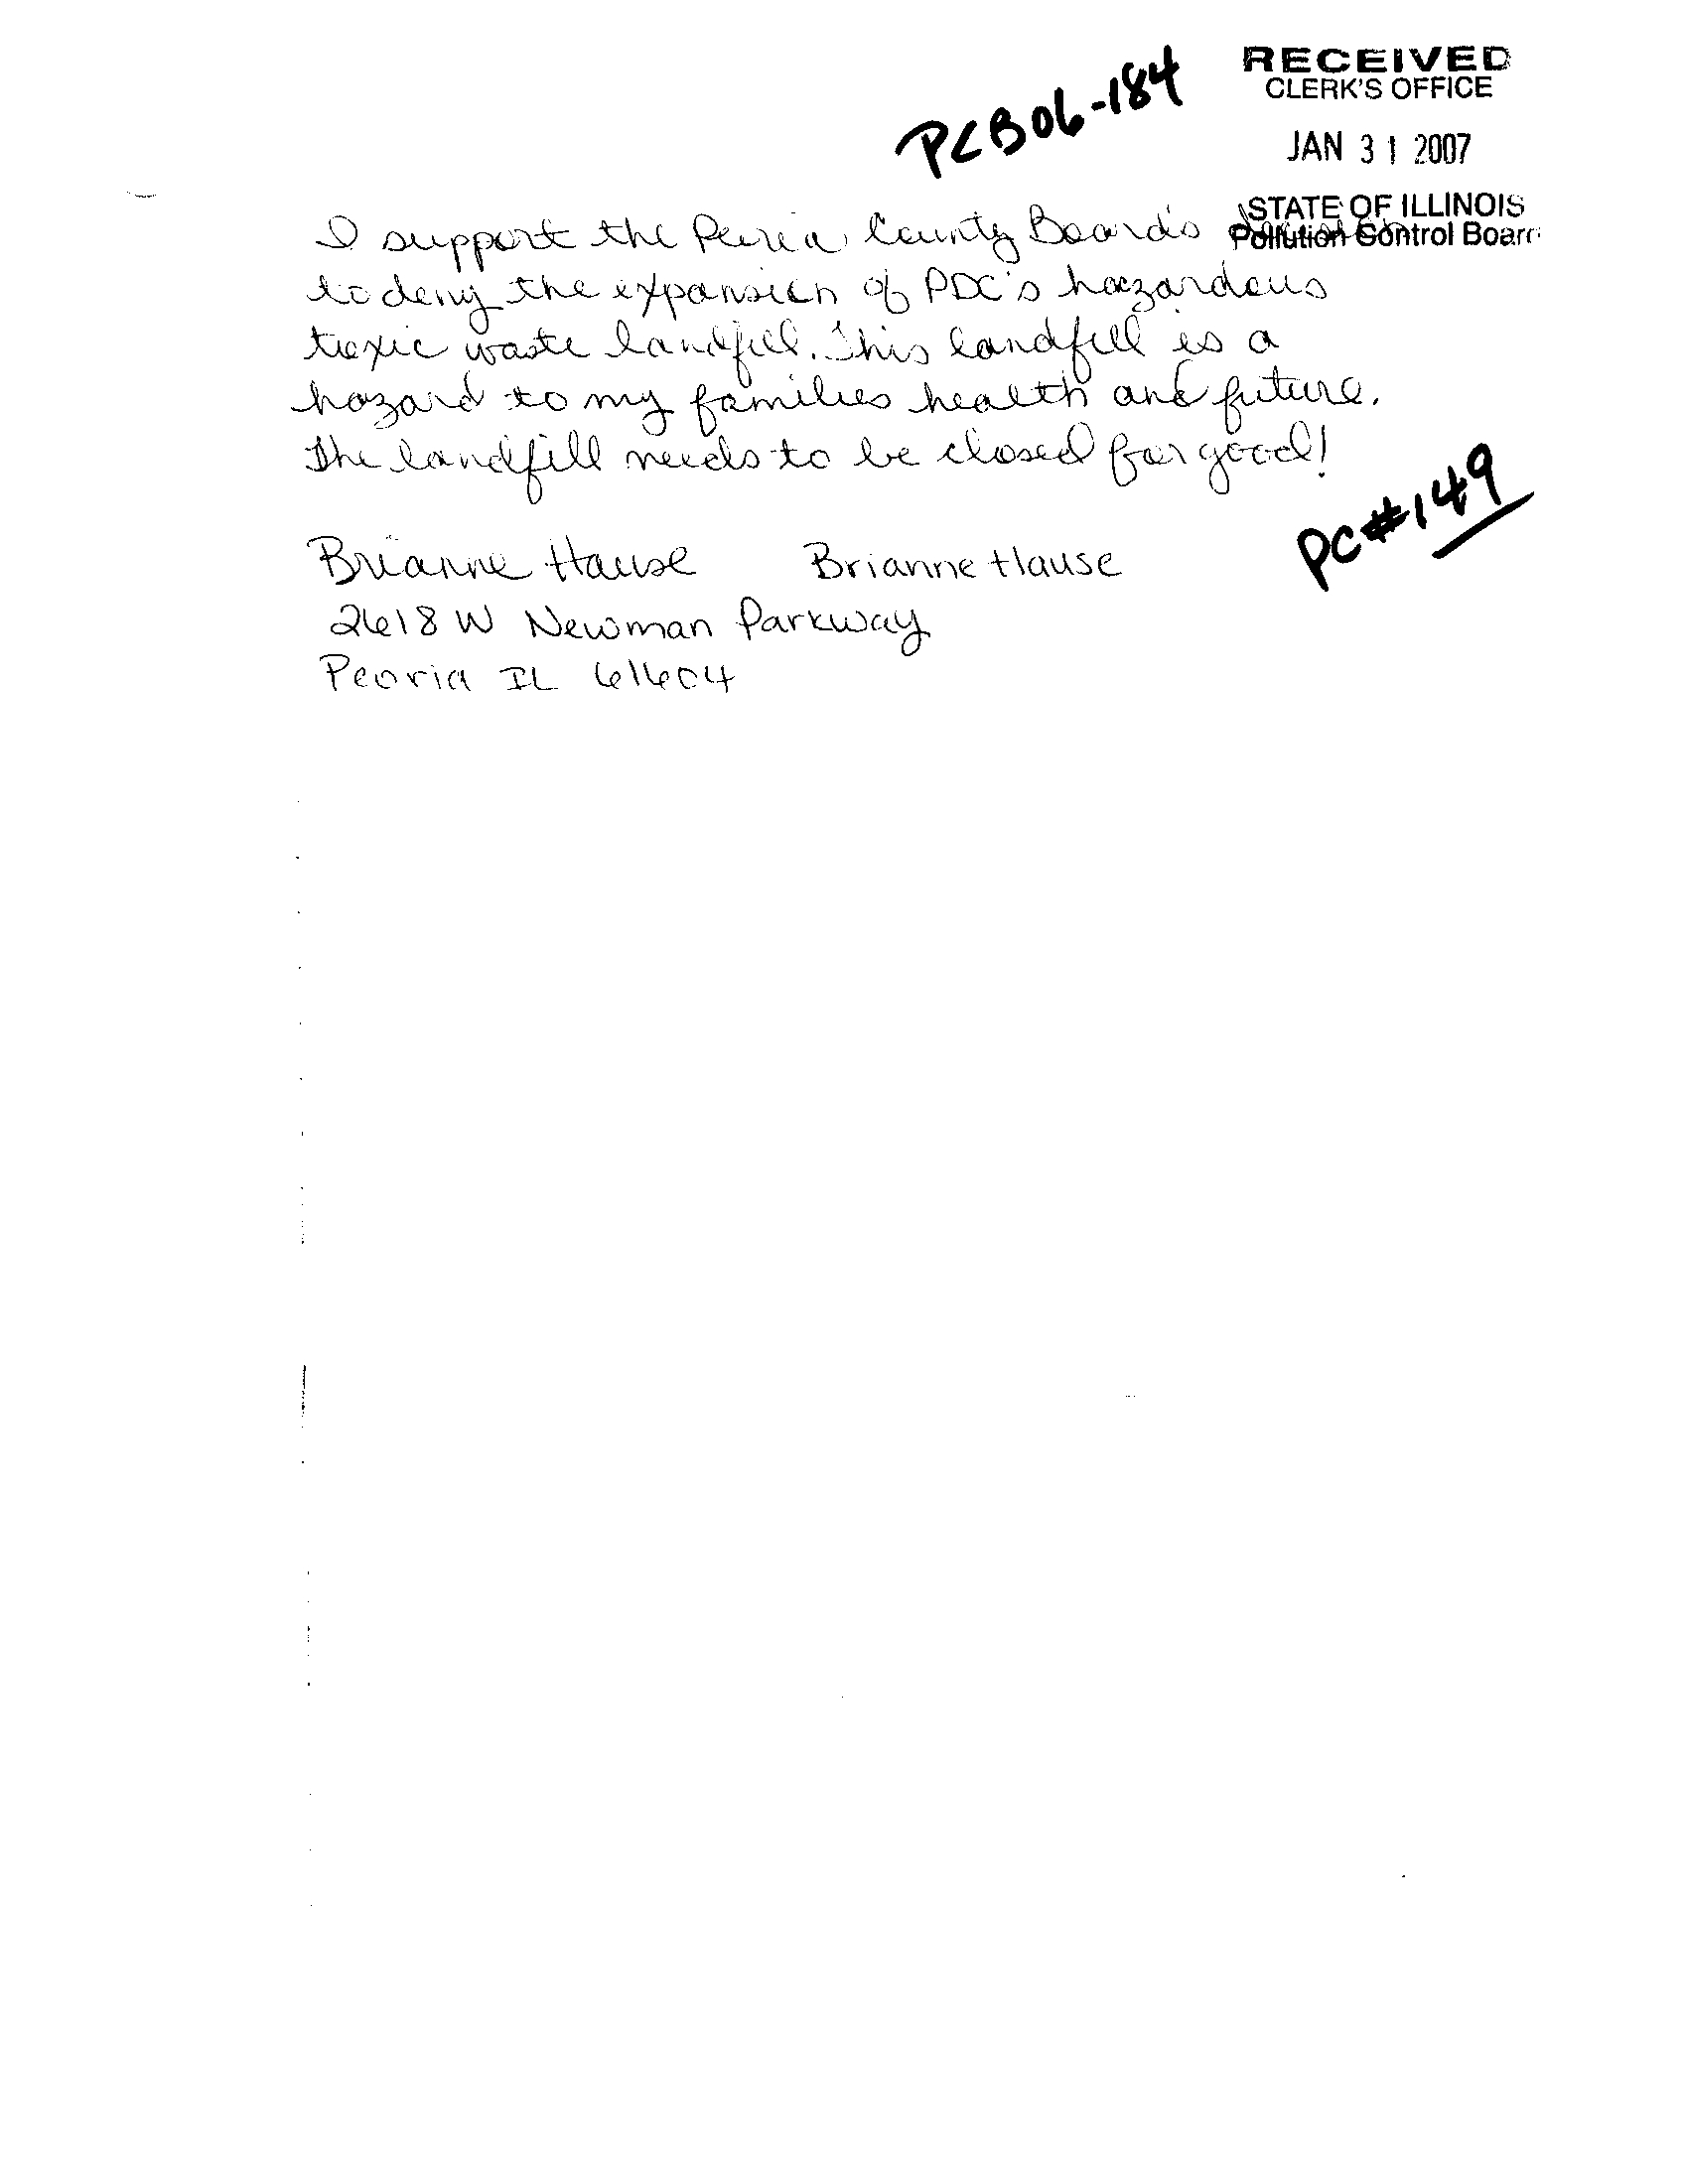 PCB06-184
RECEIVED
CLERK'S OFFICE
JAN 31 2007
STATE OF ILLINOIS
Pollution Control Board
I support the Peoria County Board's
to deny the expansion of PDC's hazardous
toxic waste landfill. This landfill is a
hazard to my families health and future.
The landfill needs to be closed for good!
PC#149
Brianne Hause Brianne Hause
2618 W Newman Parkway
Peoria IL 61604